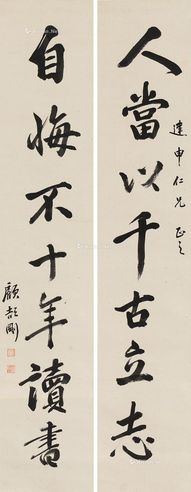 人當以千古立志
達申仁兄 正之
自悔不十年讀書
顧頡剛